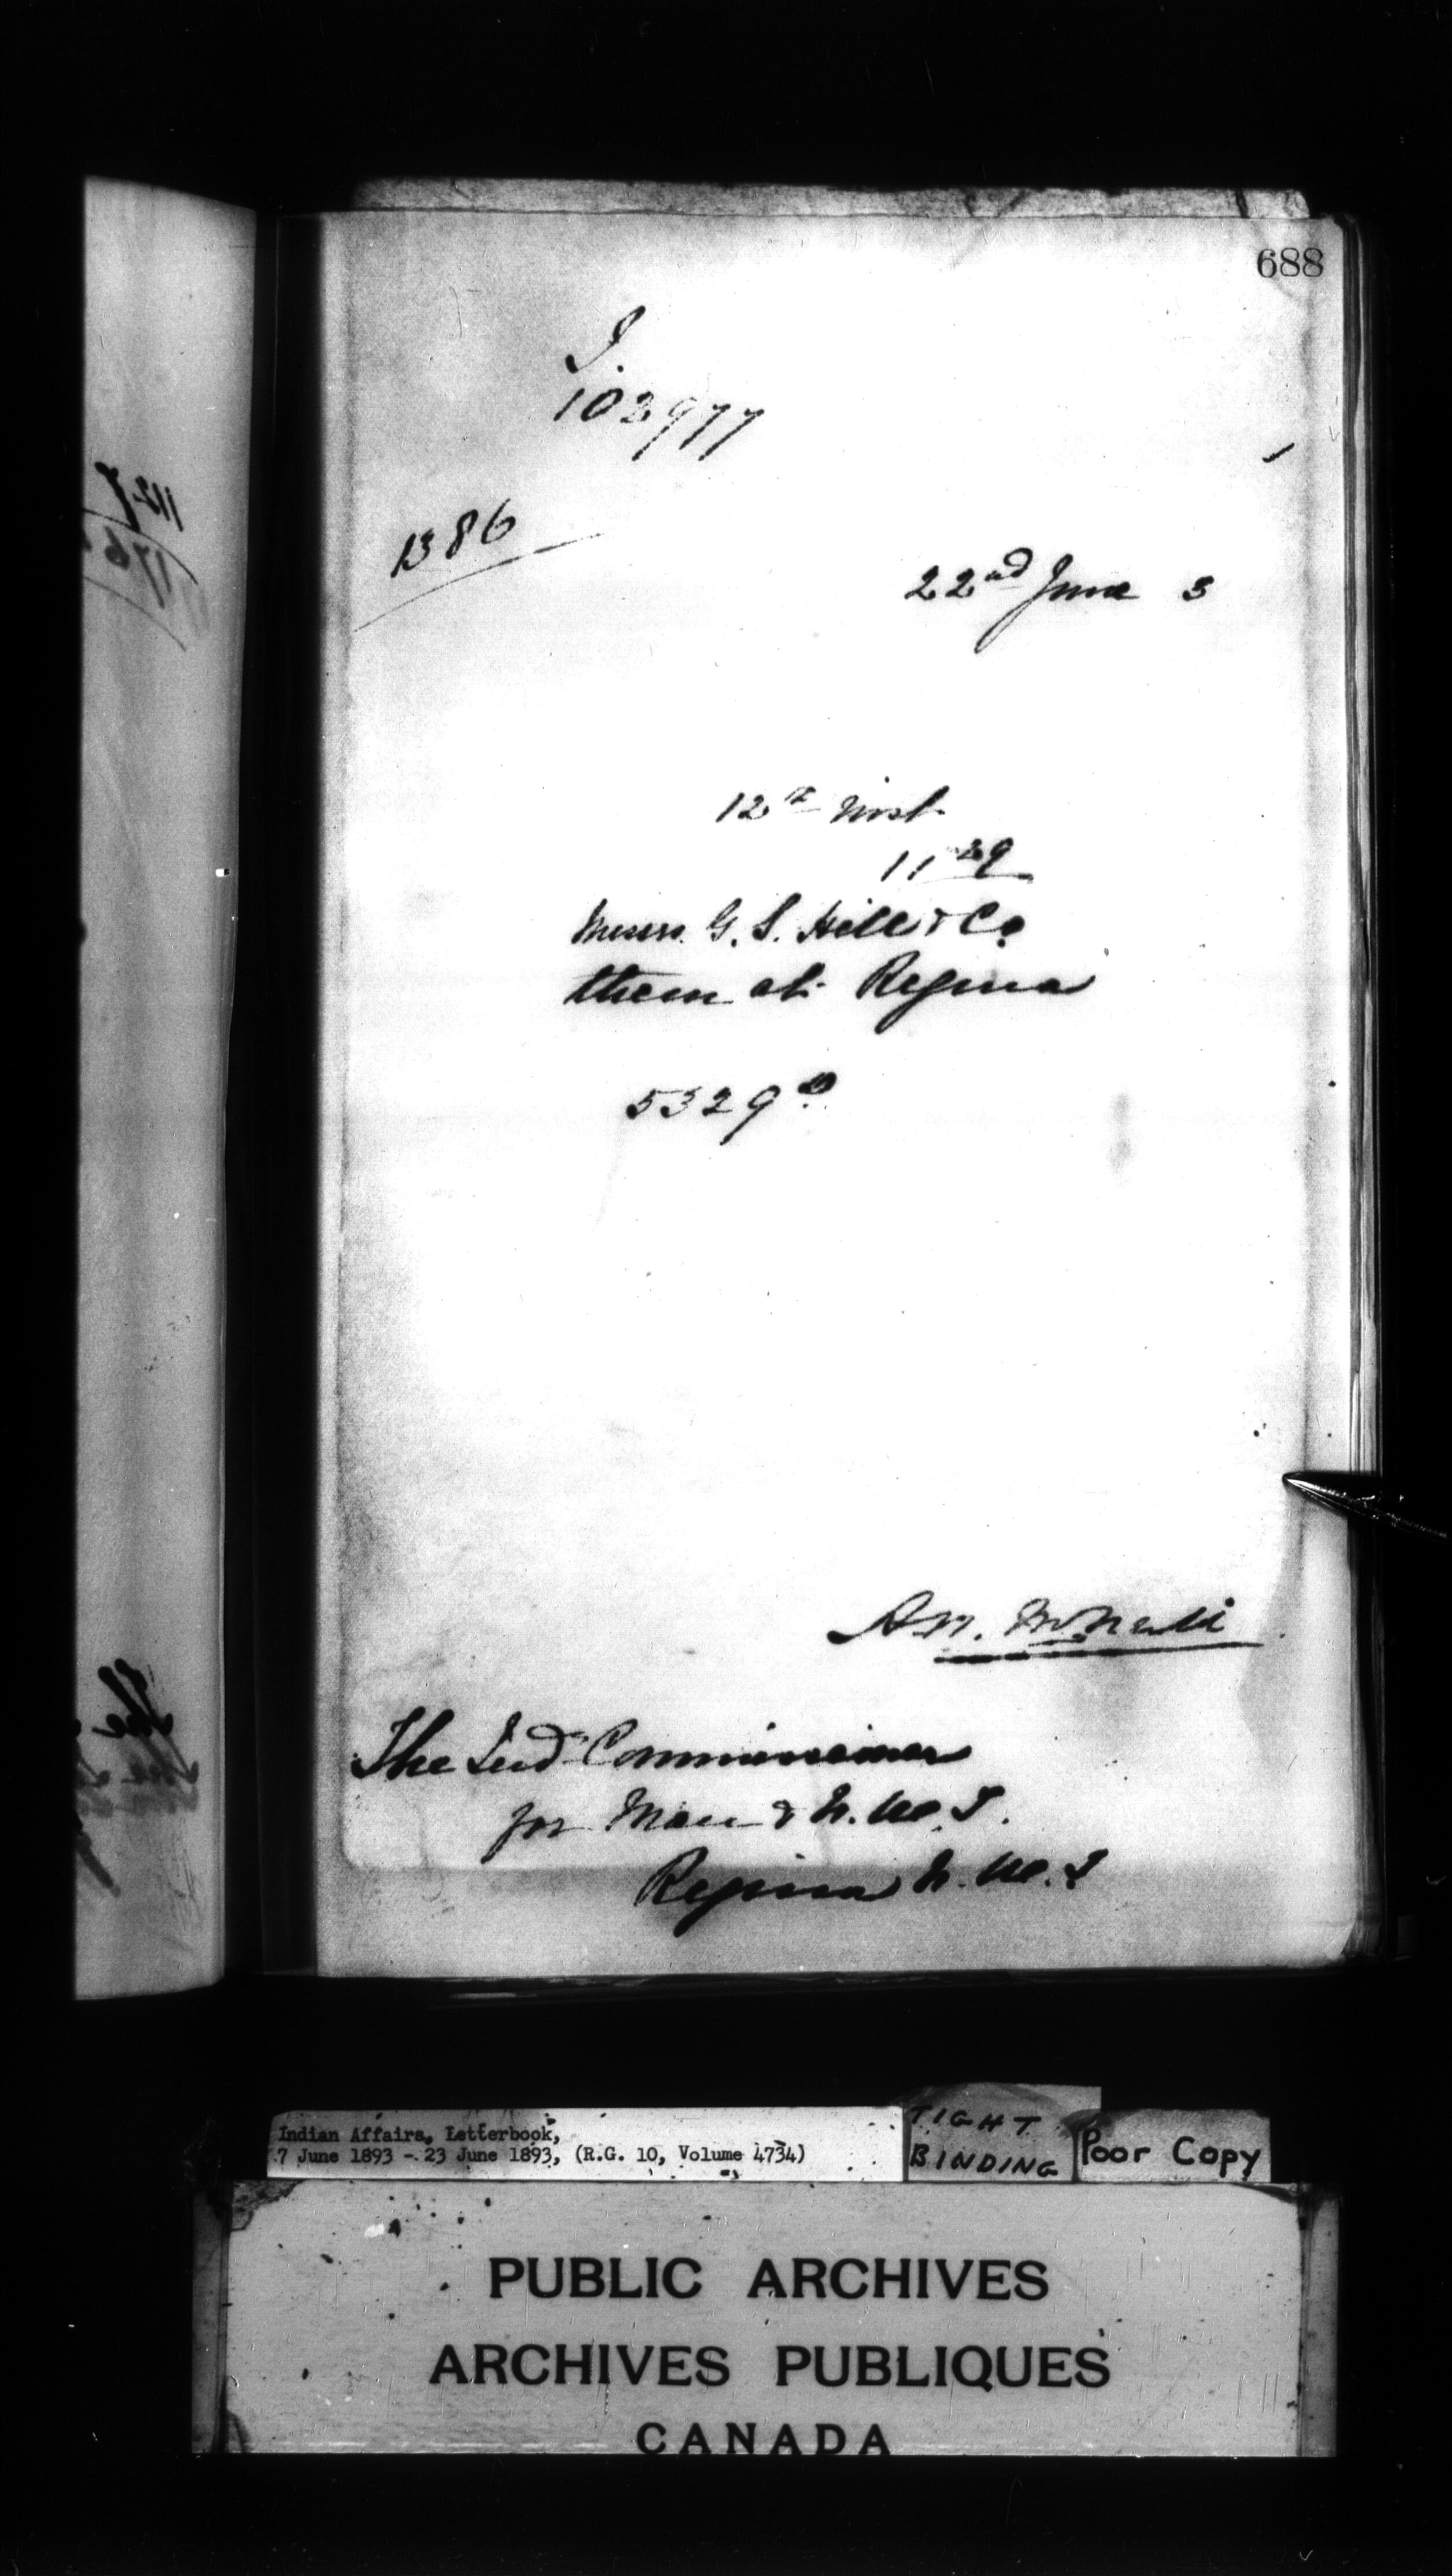 688
102977
1386
22nd June 3
12th inst.
11 29
Messrs. G. S. Hill & Co
them at Regina
5329
The Ind Commissioner
for Man & N. W. T.
Regina N. W. T
Indian Affairs, Letterbook,
7 June 1893 - 23 June 1893, (R.G. 10, Volume 4734)
TIGHT
BINDING
Poor Copy
PUBLIC ARCHIVES
ARCHIVES PUBLIQUES
CANADA